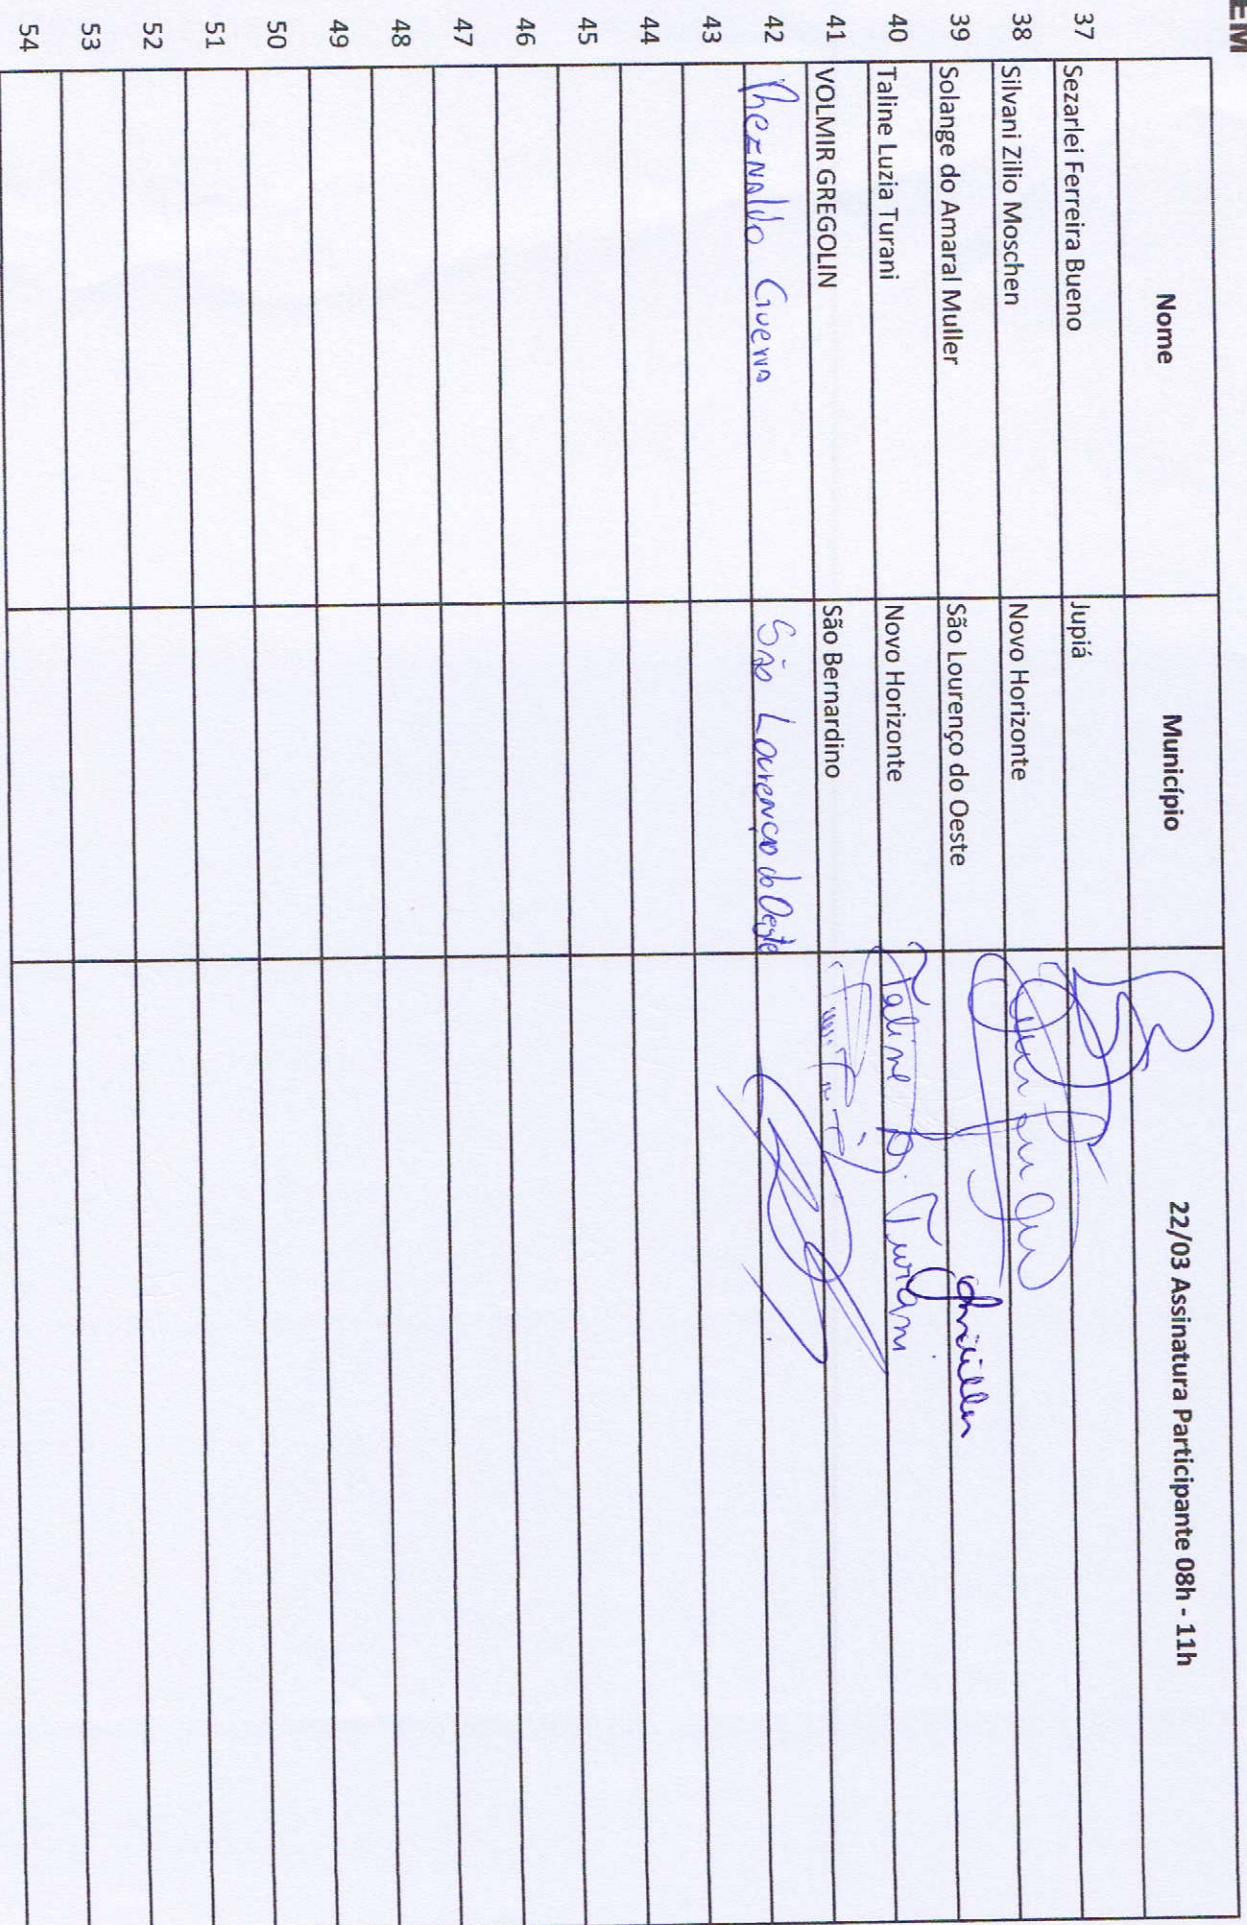 EM
Nome Município 22/03 Assinatura Participante 08h - 11h
37 Sezarlei Ferreira Bueno Jupiá
38 Silvani Zilio Moschen Novo Horizonte
39 Solange do Amaral Muller São Lourenço do Oeste
40 Taline Luzia Turani Novo Horizonte Taline L. Turani
41 VOLMIR GREGOLIN São Bernardino
42 Guerra São Lourenço do Oeste
43
44
45
46
47
48
49
50
51
52
53
54